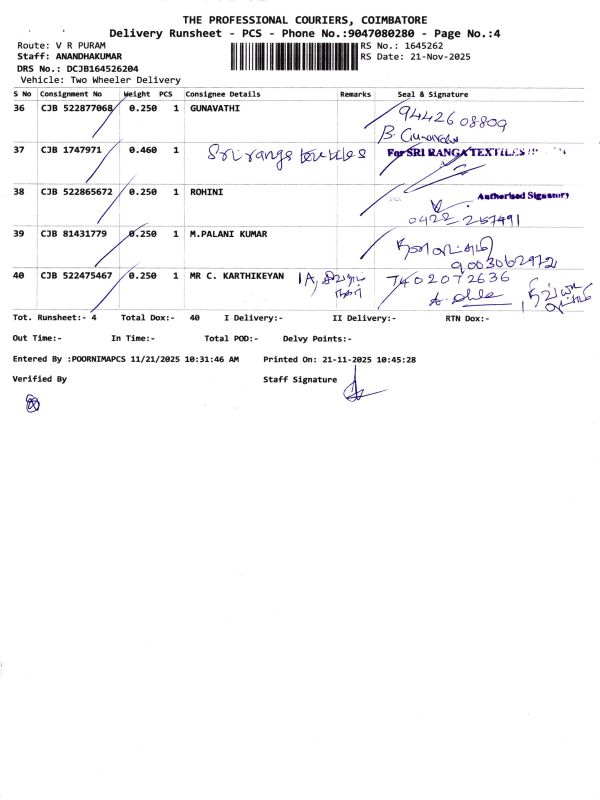 THE PROFESSIONAL COURIERS, COIMBATORE
Delivery Runsheet - PCS - Phone No.:9047080280 - Page No.:4
Route: V R PURAM
RS No.: 1645262
Staff: ANANDHAKUMAR
RS Date: 21-Nov-2025
DRS No.: DCJB164526204
Vehicle: Two Wheeler Delivery
S No Consignment No Weight PCS Consignee Details Remarks Seal & Signature
36 CJB 522877068 0.250 1 GUNAVATHI
9442608809
B. Gunavathi
37 CJB 1747971 0.460 1 Sri ranga textiles
For SRI RANGA TEXTILES
38 CJB 522865672 0.250 1 ROHINI
Authorised Signatory
0422 257491
39 CJB 81431779 0.250 1 M.PALANI KUMAR
9003062972
40 CJB 522475467 0.250 1 MR C. KARTHIKEYAN
7402072636
Tot. Runsheet:- 4 Total Dox:- 40 I Delivery:- II Delivery:- RTN Dox:-
Out Time:- In Time:- Total POD:- Delvy Points:-
Entered By :POORNIMAPCS 11/21/2025 10:31:46 AM Printed On: 21-11-2025 10:45:28
Verified By Staff Signature